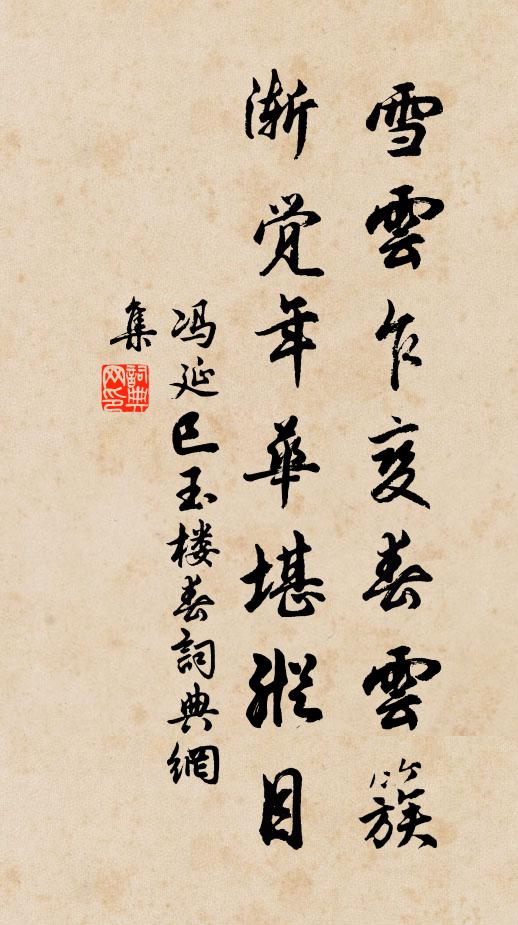 雪雲乍变春雲簇
渐觉年華堪纵目
冯延巳玉楼春詞典網
集
詞典网印